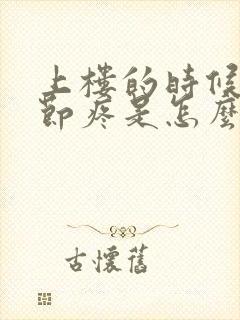 上樓的時候
節疼是怎麼
古懷舊